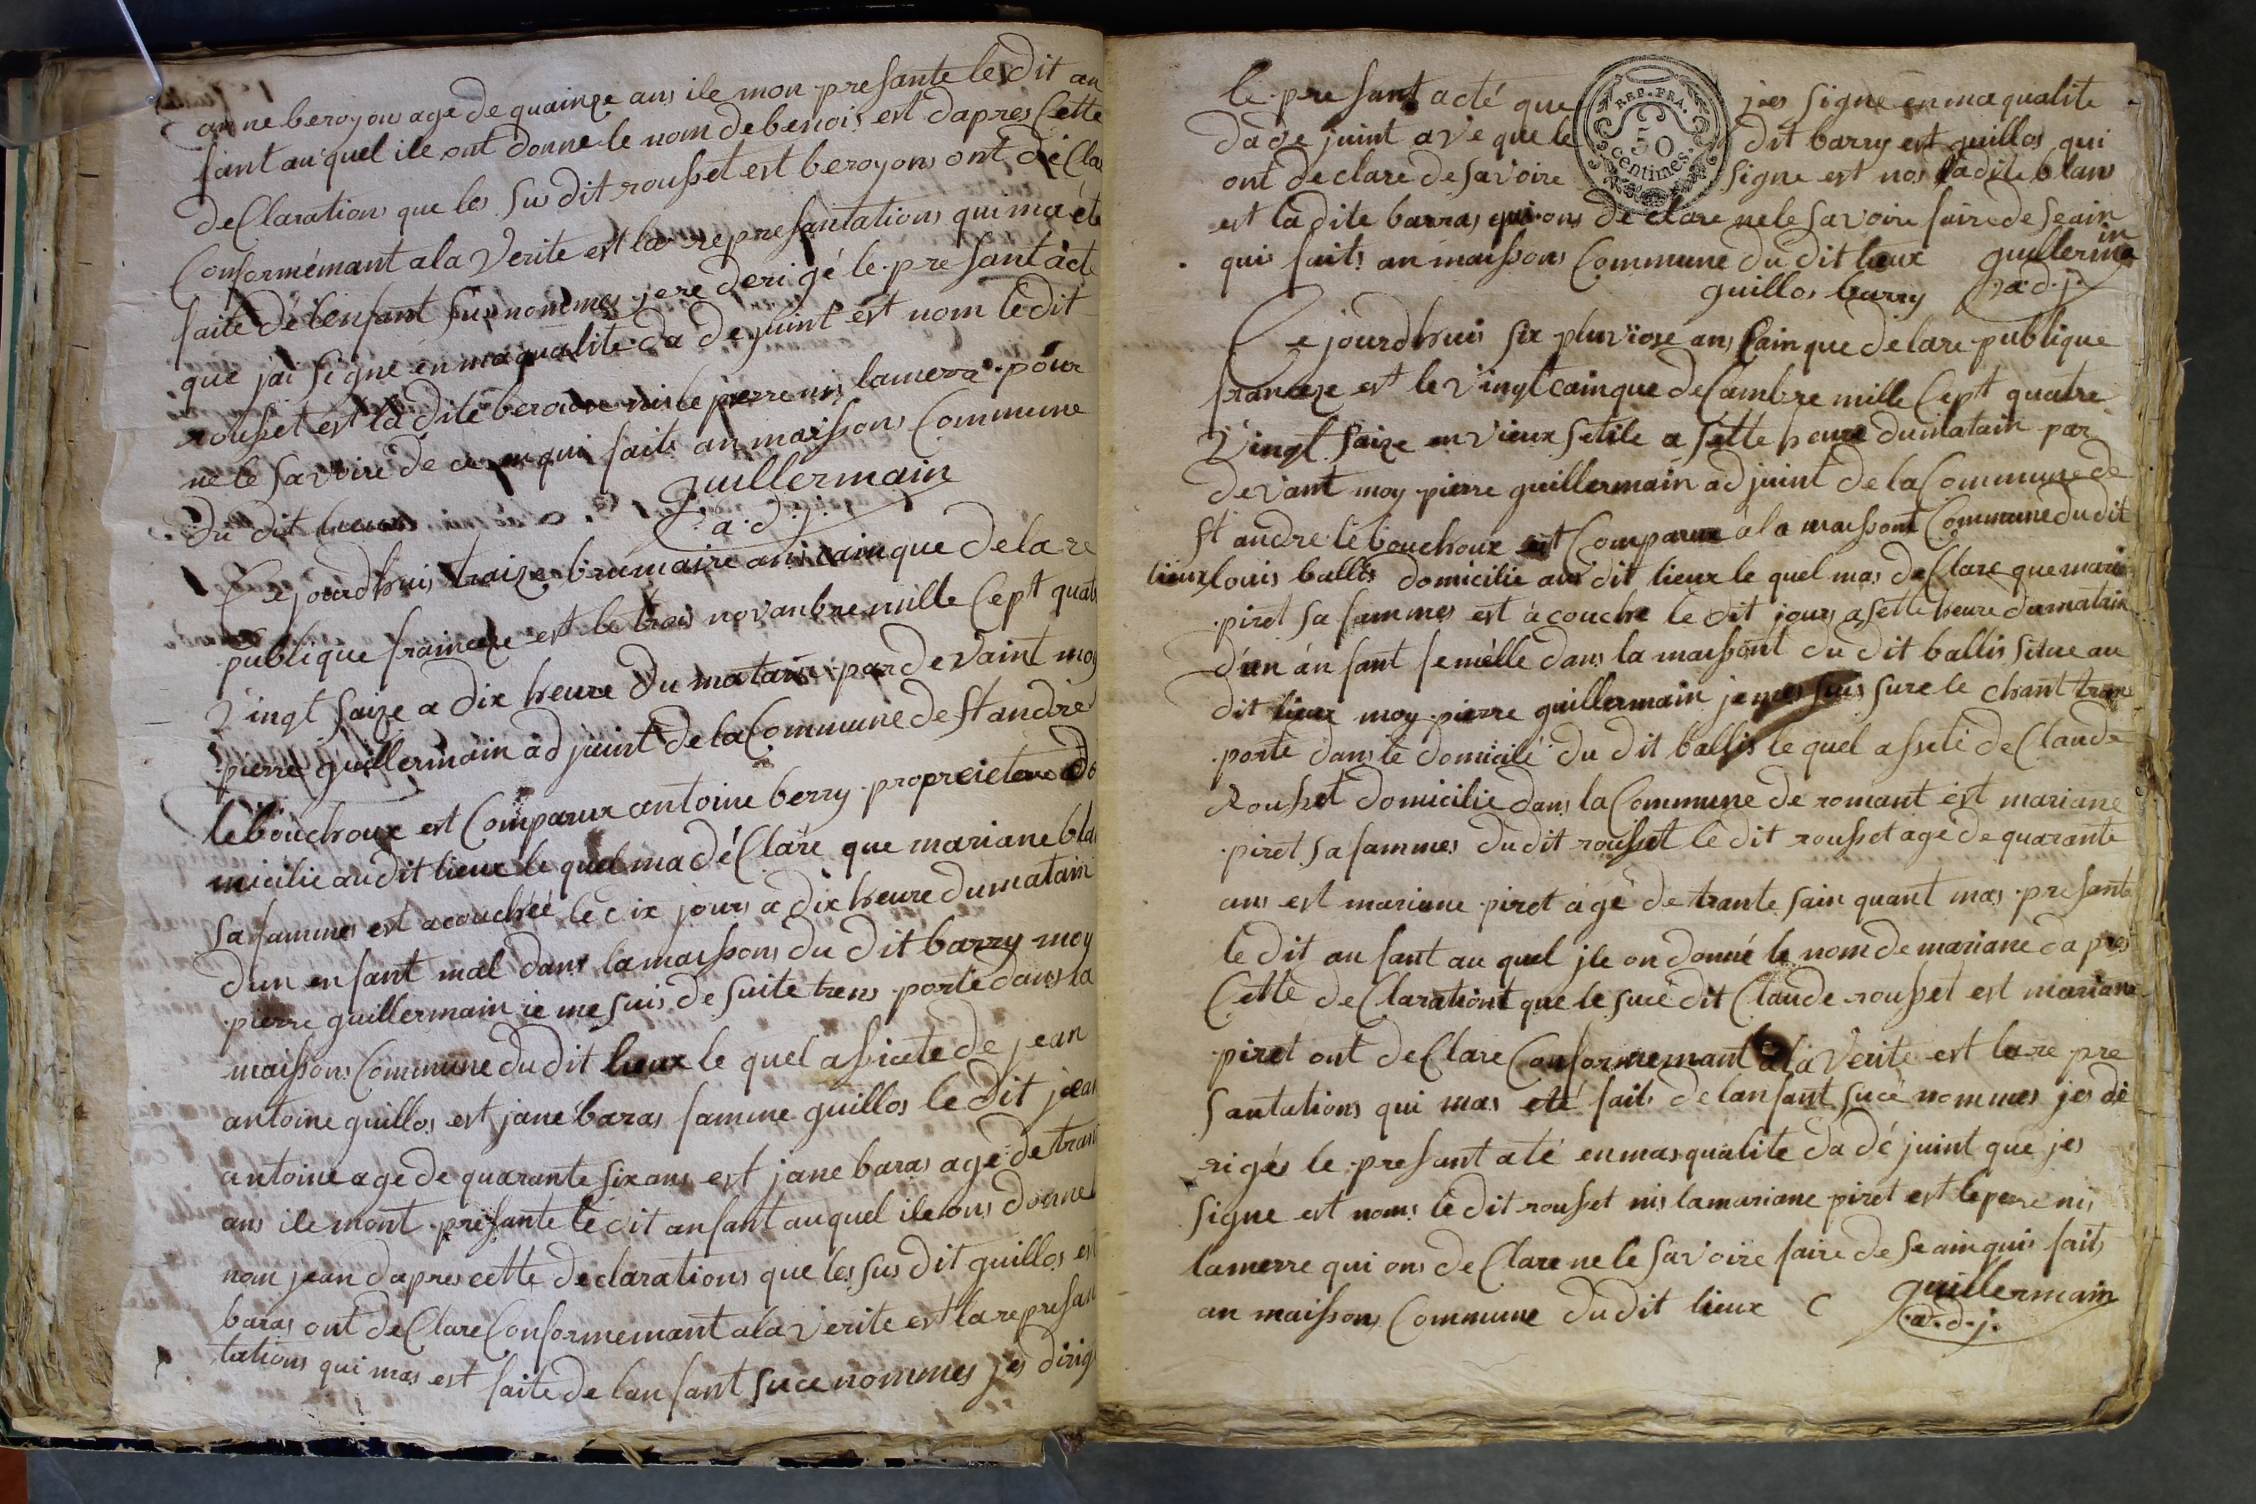 anne beroyon age de quainze ans ile mon presante le dit an
fant au quel ile ont donne le nom de benois est dapres Cette
de Claration que les sus dit rousset est beroyons ont de Cla
Conformémant a la Verite est la represantations qui ma été
faite dé lenfant sus nommes je re derigé le presant acte
que jai signé en ma qualite da de juint est nom le dit
rousset est la dite beroion nis le pierre nis lamerre pour
ne le savoire de ce qui fait an maissons Commune
du dit lieux guillermain
a. d. j.
Ce jourdhuis traize brumaire ans cainque de la re
publique frainceze est le trois novanbre mille Cept quat
Vingt saize a dix heure du matain par devaint moy
pierre guillermain ad juint de la Commune de st andré
le bouchoux est Comparux antoine berry proprcietere do
micilie au dit lieux le quel ma dé Claré que mariane bla
sa fammes est acouchéé le c ix jours a dix heure du matain
dun enfant mal dans la maissons du dit barry moy
pierre guillermain je me suis de suite trens porté dans la
maissons Commune du dit lieux le quel assicte de jean
antoine guillos est jane baras famme guillos le dit jean
antoine age de quarante six ans est jane baras age de trant
ans ile mont presante le dit anfant au quel ile ons donne
nom jean dapres cette declarations que les sus dit guillos est
baras ont de Clare Conformemant a la verite est la represan
tations qui mas est faite de lanfant suce nommes jes dirig
le presant acté que jees signe en ma qualite
da de juint ave que le dit barry est guillos qui
ont declare de savoire signe est nos la dite blans
est la dite barras qui ons de clare ne le savoire faire de seain
qui fait an maissons Commune du dit lieux guillermain
guillos barry a. d. j.
Ce jourdhuis six pluviose ans Cainque de lare publique
franceze est le vingt cainque decambre mille Cept quatre
Vingt saize en vieux setile a sette heure du matain par
devant moy pierre guillermain ad juint de la Commune de
st andre le bouchoux est Comparux a la maissont Commune du dit
lieux louis ballis domicilie au dit lieux le quel mas de Clare que marie
piret sa fammes est acouche le dit jours a sette heure du matain
d'un anfant femélle dans la maissont du dit ballis situe au
dit lieux moy pierre guillermain je mes suis sure le chant trans
porté dans le domicilé du dit ballis le quel assité de Claude
Rousset domicilie dans la Commune de romant est mariane
piret sa fammes du dit rousset le dit rousset age de quarante
ans est mariane piret agé de trante sain quant mas presante
le dit anfant au quel jle on donné le nom de mariane da pres
Cette de Clarationt que le sucé dit Claude rousset est mariane
piret ont de Clare Conformemant a la Verite est la re pre
santations qui mas eté fait de lanfant sucé nommes jes de
rigés le presant até en mas qualite da dé juint que jes
signe est noms le dit rousset nis la mariane piret est le pere nis
lamerre qui ons de Clare ne le savoire faire de seain qui fait
an maissons Commune du dit lieux guillermain
a. d. j.
REP. FRA.
50
centimes.